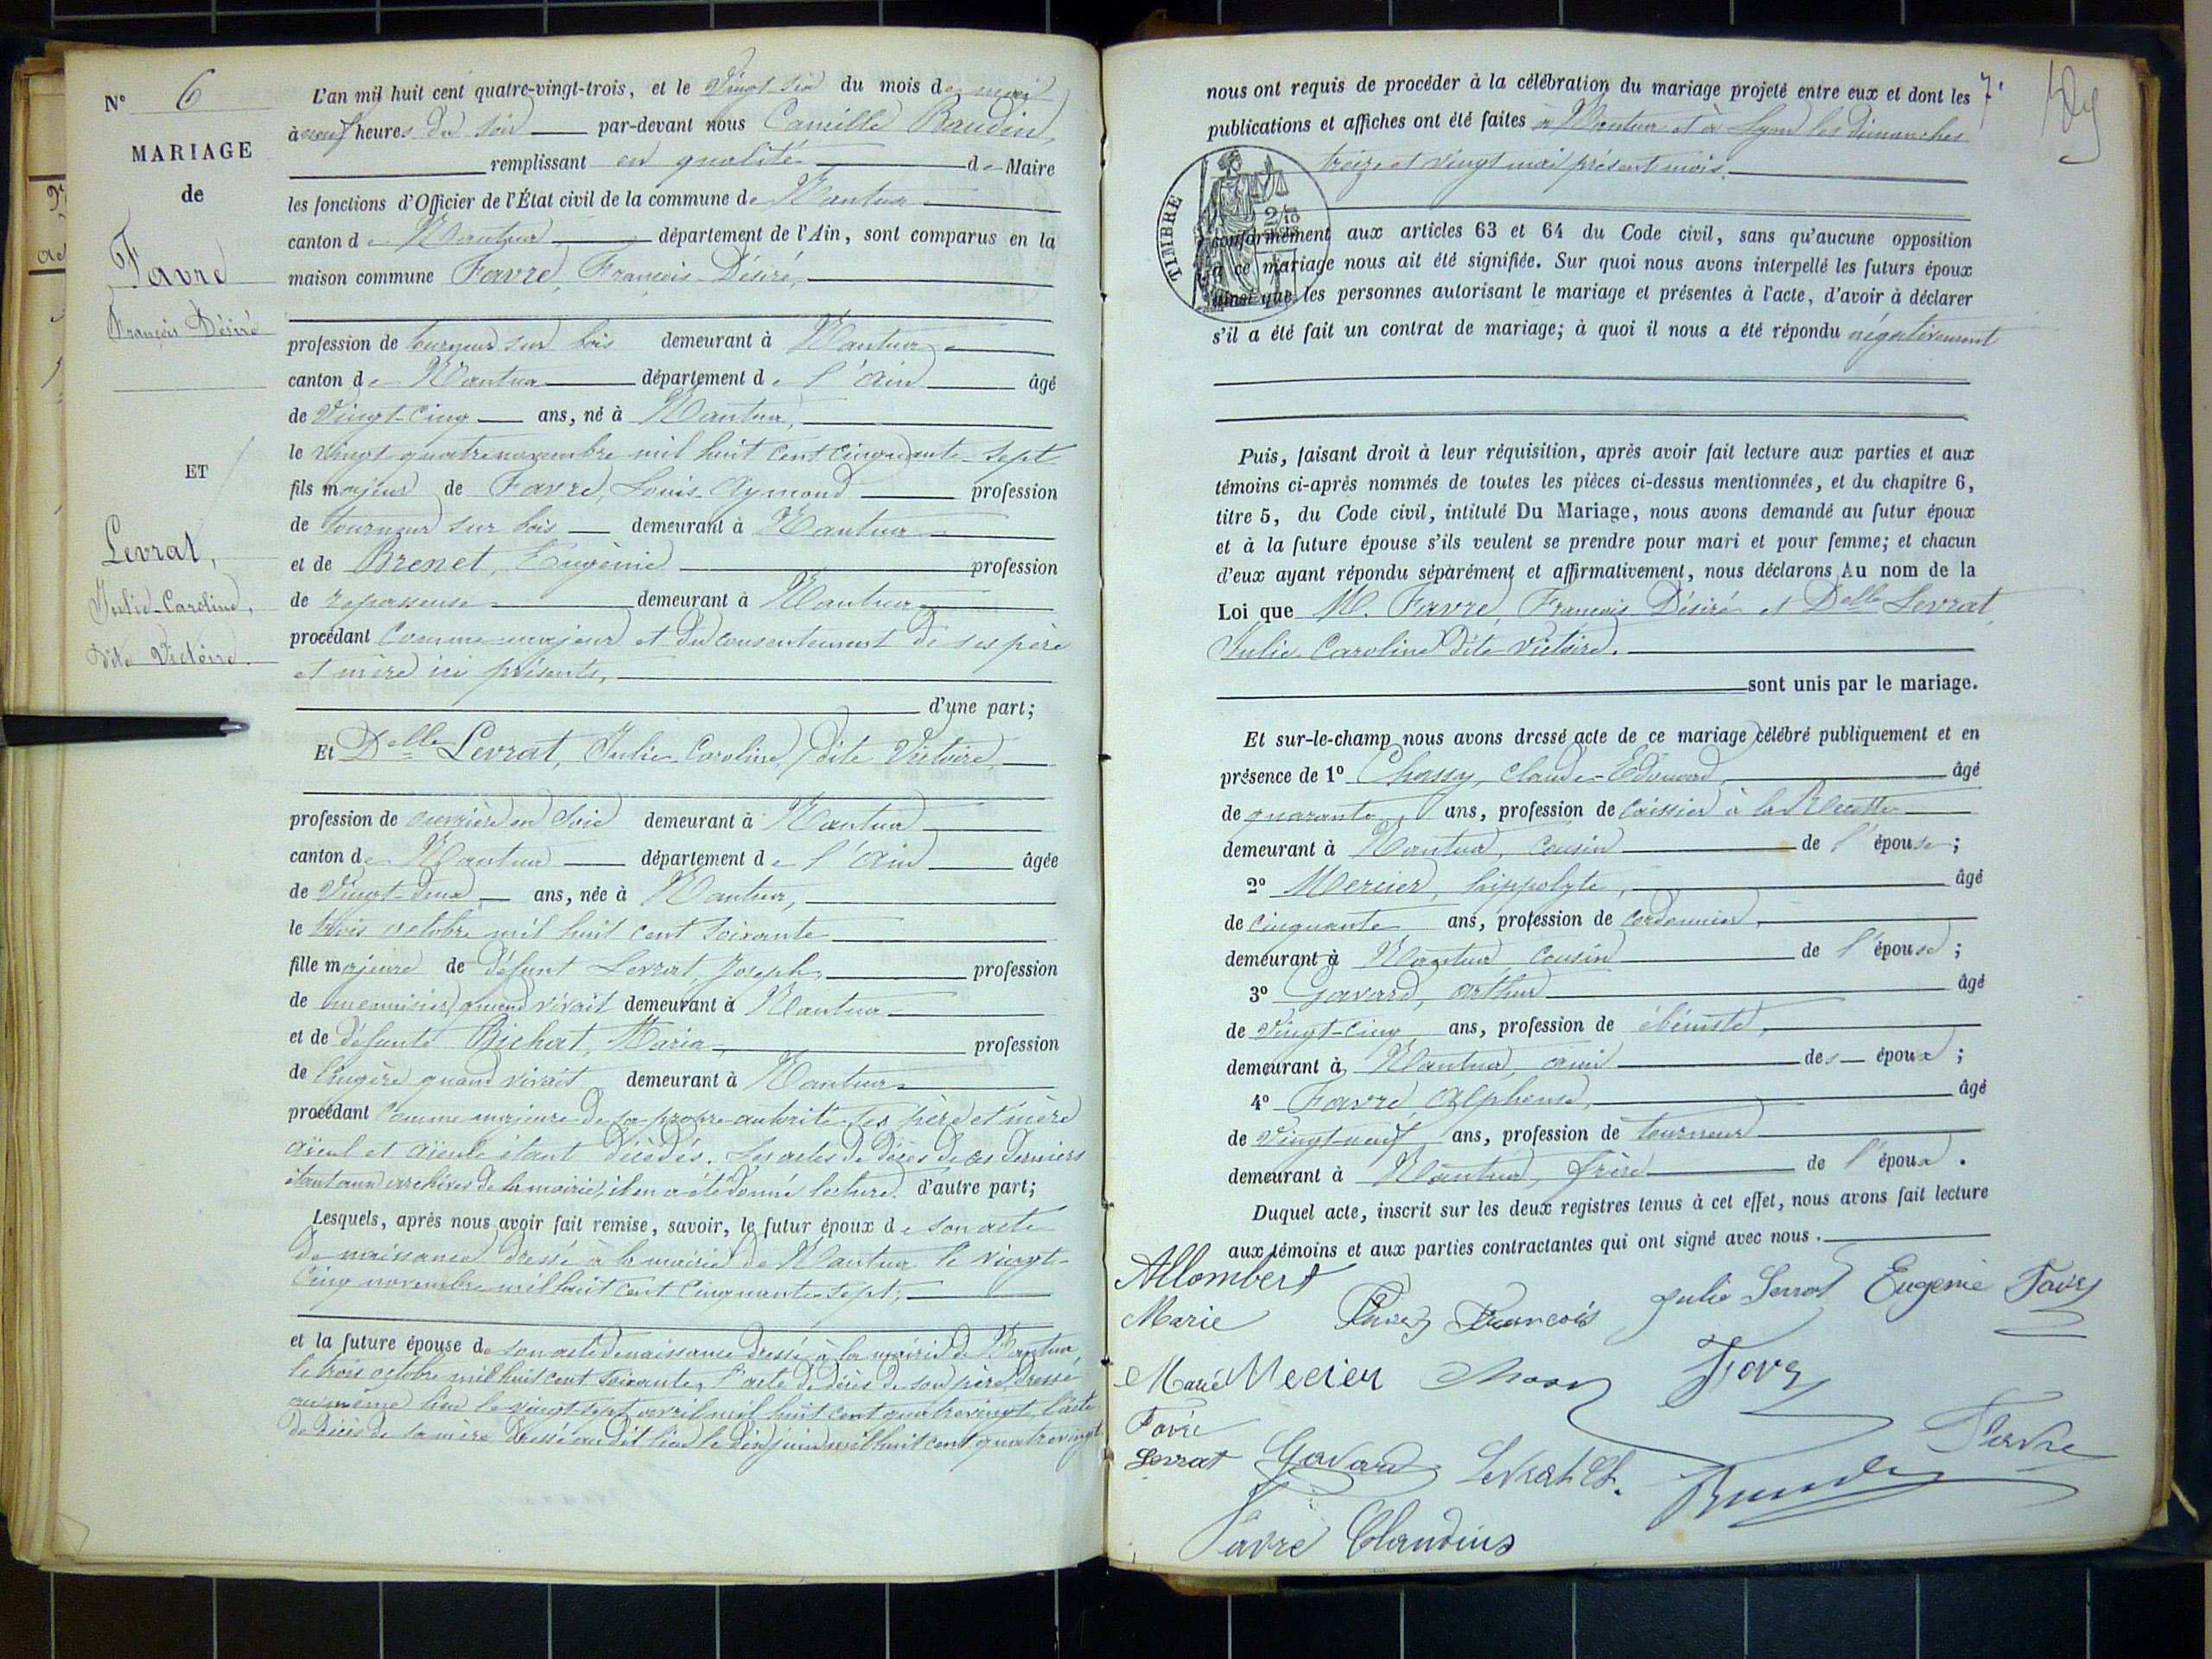 N° 6
MARIAGE
de
Favre
François Désiré
ET
Levrat,
Julie-Caroline,
dite Victoire.
L'an mil huit cent quatre-vingt-trois, et le Vingt-six du mois de mai
à neuf heures du soir par-devant nous Camille Baudin,
remplissant en qualité de Maire
les fonctions d'Officier de l'État civil de la commune de Nantua
canton de Nantua département de l'Ain, sont comparus en la
maison commune Favre, François-Désiré,
profession de tourneur sur bois demeurant à Nantua
canton de Nantua département de l'Ain âgé
de Vingt-cinq ans, né à Nantua,
le vingt-quatre novembre mil huit cent cinquante-sept
fils majeur de Favre, Louis-Aymond profession
de tourneur sur bois demeurant à Nantua
et de Brenet, Eugénie profession
de repasseuse demeurant à Nantua
procédant comme majeur et du consentement de ses père
et mère ici présents,
d'une part;
Et Delle Levrat, Julie-Caroline, dite Victoire,
profession de ouvrière en soie demeurant à Nantua
canton de Nantua département de l'Ain âgée
de Vingt-deux ans, née à Nantua,
le trois octobre mil huit cent soixante
fille majeure de défunt Levrat, Joseph, profession
de menuisier, quand vivait demeurant à Nantua
et de défunte Bichat, Maria, profession
de lingère quand vivait demeurant à Nantua
procédant comme majeure de sa propre autorité ses père et mère
aïeul et aïeule étant décédés. Les actes de décès de ces derniers
étant aux archives de la mairie, il en a été donné lecture. d'autre part;
Lesquels, après nous avoir fait remise, savoir, le futur époux de son acte
de naissance dressé à la mairie de Nantua le vingt-
cinq novembre mil huit cent cinquante-sept;
et la future épouse de son acte de naissance dressé à la mairie de Nantua,
le trois octobre mil huit cent soixante, l'acte de décès de son père, dressé
au même lieu le vingt-sept avril mil huit cent quatre vingt, l'acte
de décès de sa mère dressé au dit lieu le dix juin mil huit cent quatre vingt
nous ont requis de procéder à la célébration du mariage projeté entre eux et dont les
publications et affiches ont été faites à Nantua et à Lyon les dimanches
treize et vingt mai présent mois.
TIMBRE
2/10
conformément aux articles 63 et 64 du Code civil, sans qu'aucune opposition
à ce mariage nous ait été signifiée. Sur quoi nous avons interpellé les futurs époux
ainsi que les personnes autorisant le mariage et présentes à l'acte, d'avoir à déclarer
s'il a été fait un contrat de mariage; à quoi il nous a été répondu négativement
Puis, faisant droit à leur réquisition, après avoir fait lecture aux parties et aux
témoins ci-après nommés de toutes les pièces ci-dessus mentionnées, et du chapitre 6,
titre 5, du Code civil, intitulé Du Mariage, nous avons demandé au futur époux
et à la future épouse s'ils veulent se prendre pour mari et pour femme; et chacun
d'eux ayant répondu séparément et affirmativement, nous déclarons Au nom de la
Loi que M. Favre, François Désiré et Delle Levrat,
Julie Caroline dite Victoire.
sont unis par le mariage.
Et sur-le-champ nous avons dressé acte de ce mariage célébré publiquement et en
présence de 1° Chassy, Claude-Edouard, âgé
de quarante ans, profession de caissier à la Recette
demeurant à Nantua, cousin de l'épouse;
2° Mercier, hippolyte, âgé
de cinquante ans, profession de cordonnier,
demeurant à Nantua, cousin de l'épouse;
3° Gavard, arthur âgé
de vingt-cinq ans, profession de ébéniste,
demeurant à Nantua, ami des époux;
4° Favre, Alphonse, âgé
de vingt-neuf ans, profession de tourneur
demeurant à Nantua, frère de l'époux.
Duquel acte, inscrit sur les deux registres tenus à cet effet, nous avons fait lecture
aux témoins et aux parties contractantes qui ont signé avec nous.
Allombert Julie Levrat Eugenie Favre
Marie Favre François
Marie Mecier Favre
Favre
Favre
Levrat Gavard Levrat Ch. Baudin
Favre Claudius